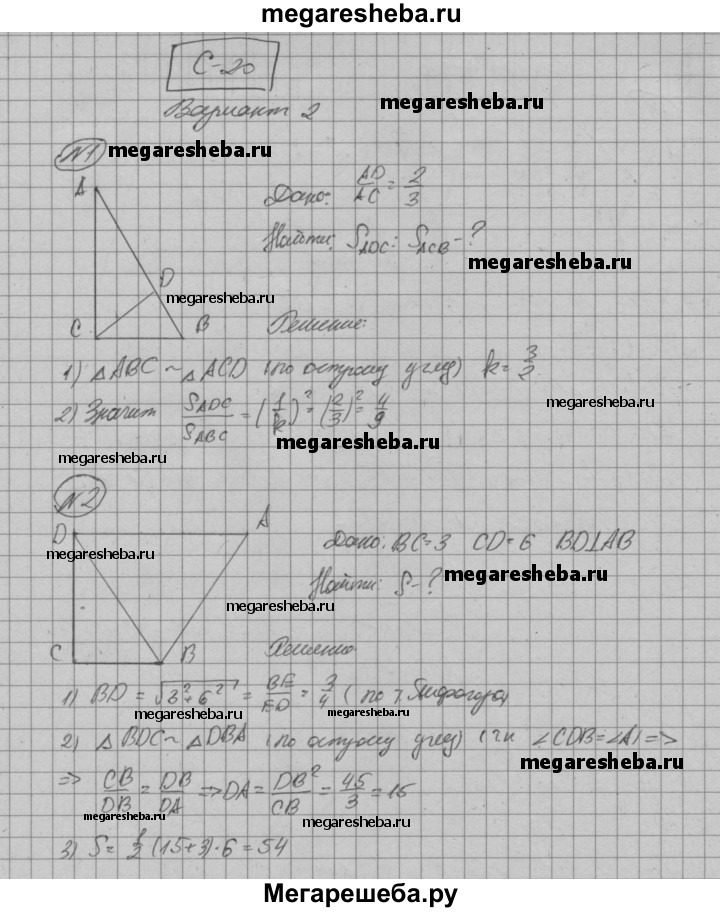 megaresheba.ru
С-20
Вариант 2
megaresheba.ru
№1
megaresheba.ru
A
Дано: AD/AC = 2/3
Найти: S_ADC : S_ACB - ?
megaresheba.ru
D
megaresheba.ru
C B
Решение:
1) △ABC ~ △ACD (по острому углу) k = 3/2
2) Значит S_ADC/S_ABC = (1/k)² = (2/3)² = 4/9
megaresheba.ru
megaresheba.ru
megaresheba.ru
№2
D A
Дано: BC=3 CD=6 BD⊥AB
megaresheba.ru
Найти: S - ?
megaresheba.ru
megaresheba.ru
C B
Решение
1) BD = √(3²+6²) = BE/ED = 3/4 (по т. Пифагора)
megaresheba.ru
megaresheba.ru
2) △BDC ~ △DBA (по острому углу) (т.к ∠CDB=∠A) =>
megaresheba.ru
=> CB/DB = DB/DA => DA = DB²/CB = 45/3 = 15
megaresheba.ru
megaresheba.ru
3) S = 1/2 (15+3)·6 = 54
Мегарешеба.ру